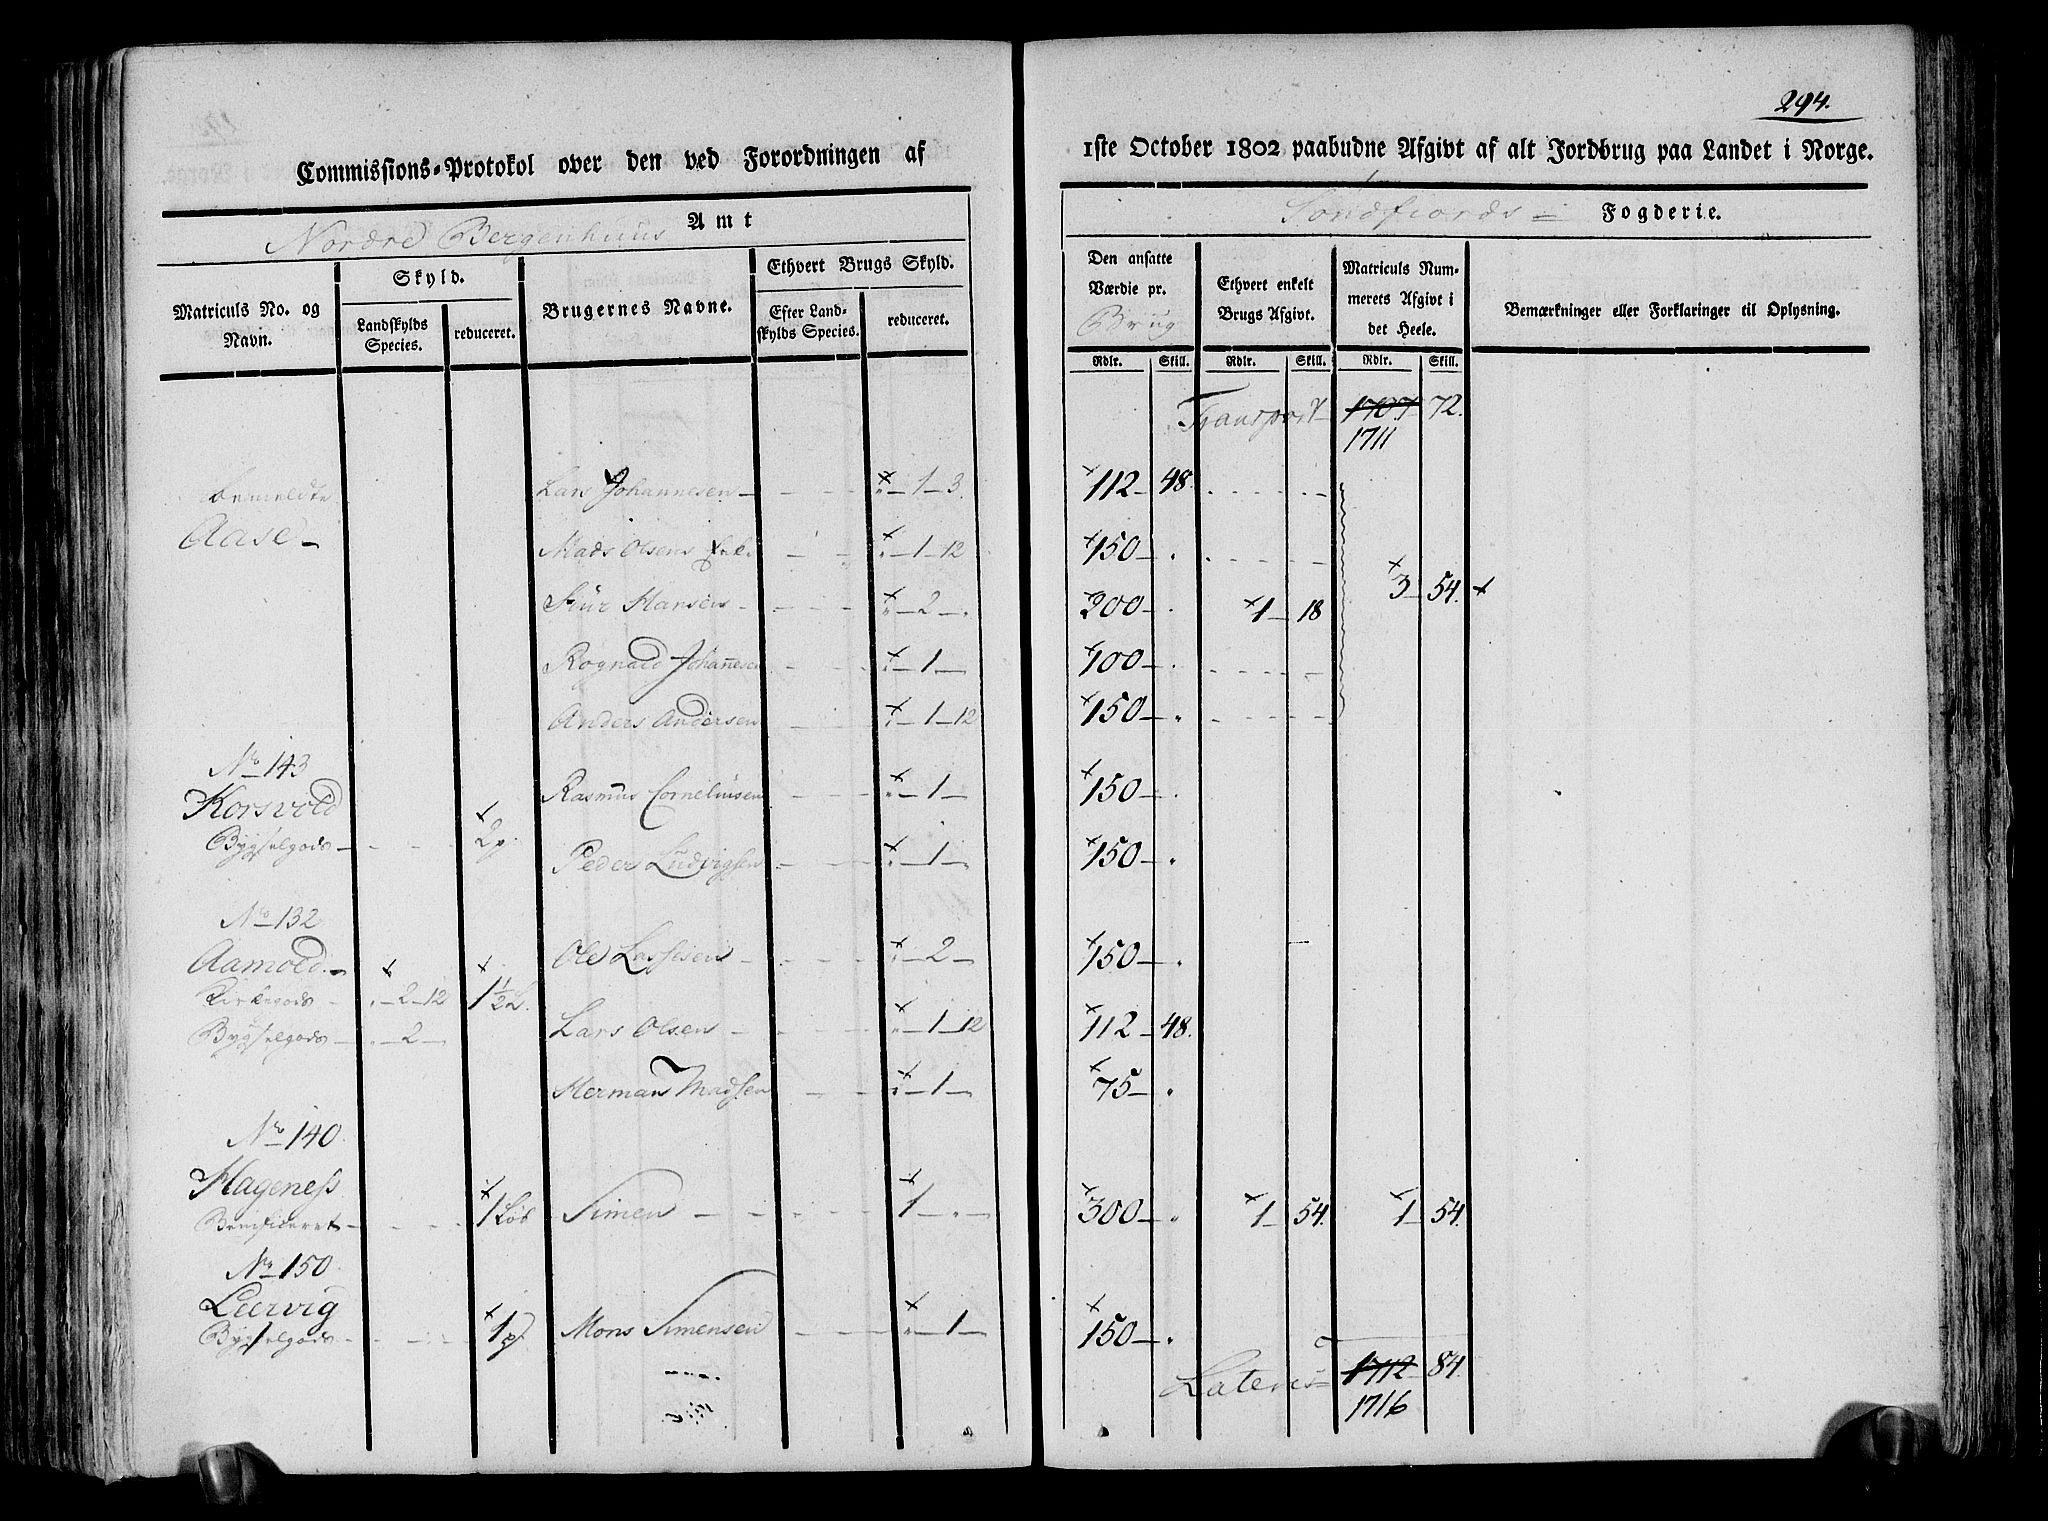 294.
Commissions-Protokol over den ved Forordningen af 1ste October 1802 paabudne Afgivt af alt Jordbrug paa Landet i Norge.
Nordre Bergenhuus Amt
Søndfiords Fogderie.
Matriculs No. og Navn.
Skyld.
Landskylds Species.
reduceret.
Brugernes Navne.
Ethvert Brugs Skyld.
Efter Landskylds Species.
reduceret.
Den ansatte Værdie pr. Brug
Ethvert enkelt Brugs Afgivt.
Matriculs Nummerets Afgivt i det Heele.
Bemærkninger eller Forklaringer til Oplysning.
Rdlr. Skill. Rdlr. Skill. Rdlr. Skill.
Transport 1707 72.
1711
bemeldte Lars Johannesen - 1 - 3. 112 - 48.
Aase Mads Olsens - 1 - 12 150 -
3 - 54.
Siur Hansen - 2 - 200 - 1 - 18
Rognald Johannesen - 1 - 100 -
Anders Andersen - 1 - 12 150 -
No 143
Korsvold Rasmus Corneliusen - 1 - 150 -
Bygselgods 2 p. Peder Ludvigsen - 1 - 150 -
No 132
Aamold Ole Lassesen - 2 - 150 -
Kirkegods - 2 - 12 1 1/2 L.
Bygselgods - 2 - Lars Olsen - 1 - 12 112 - 48.
Herman Madsen - 1 - 75 -
No 140.
Hageness
Beneficeret 1 Løb Simen 1 - 300 - 1 - 54. 1 - 54.
No 150.
Leervig
Bygselgods 1 p Mons Simensen - 1 - 150 -
Lateris 1712 84.
1716